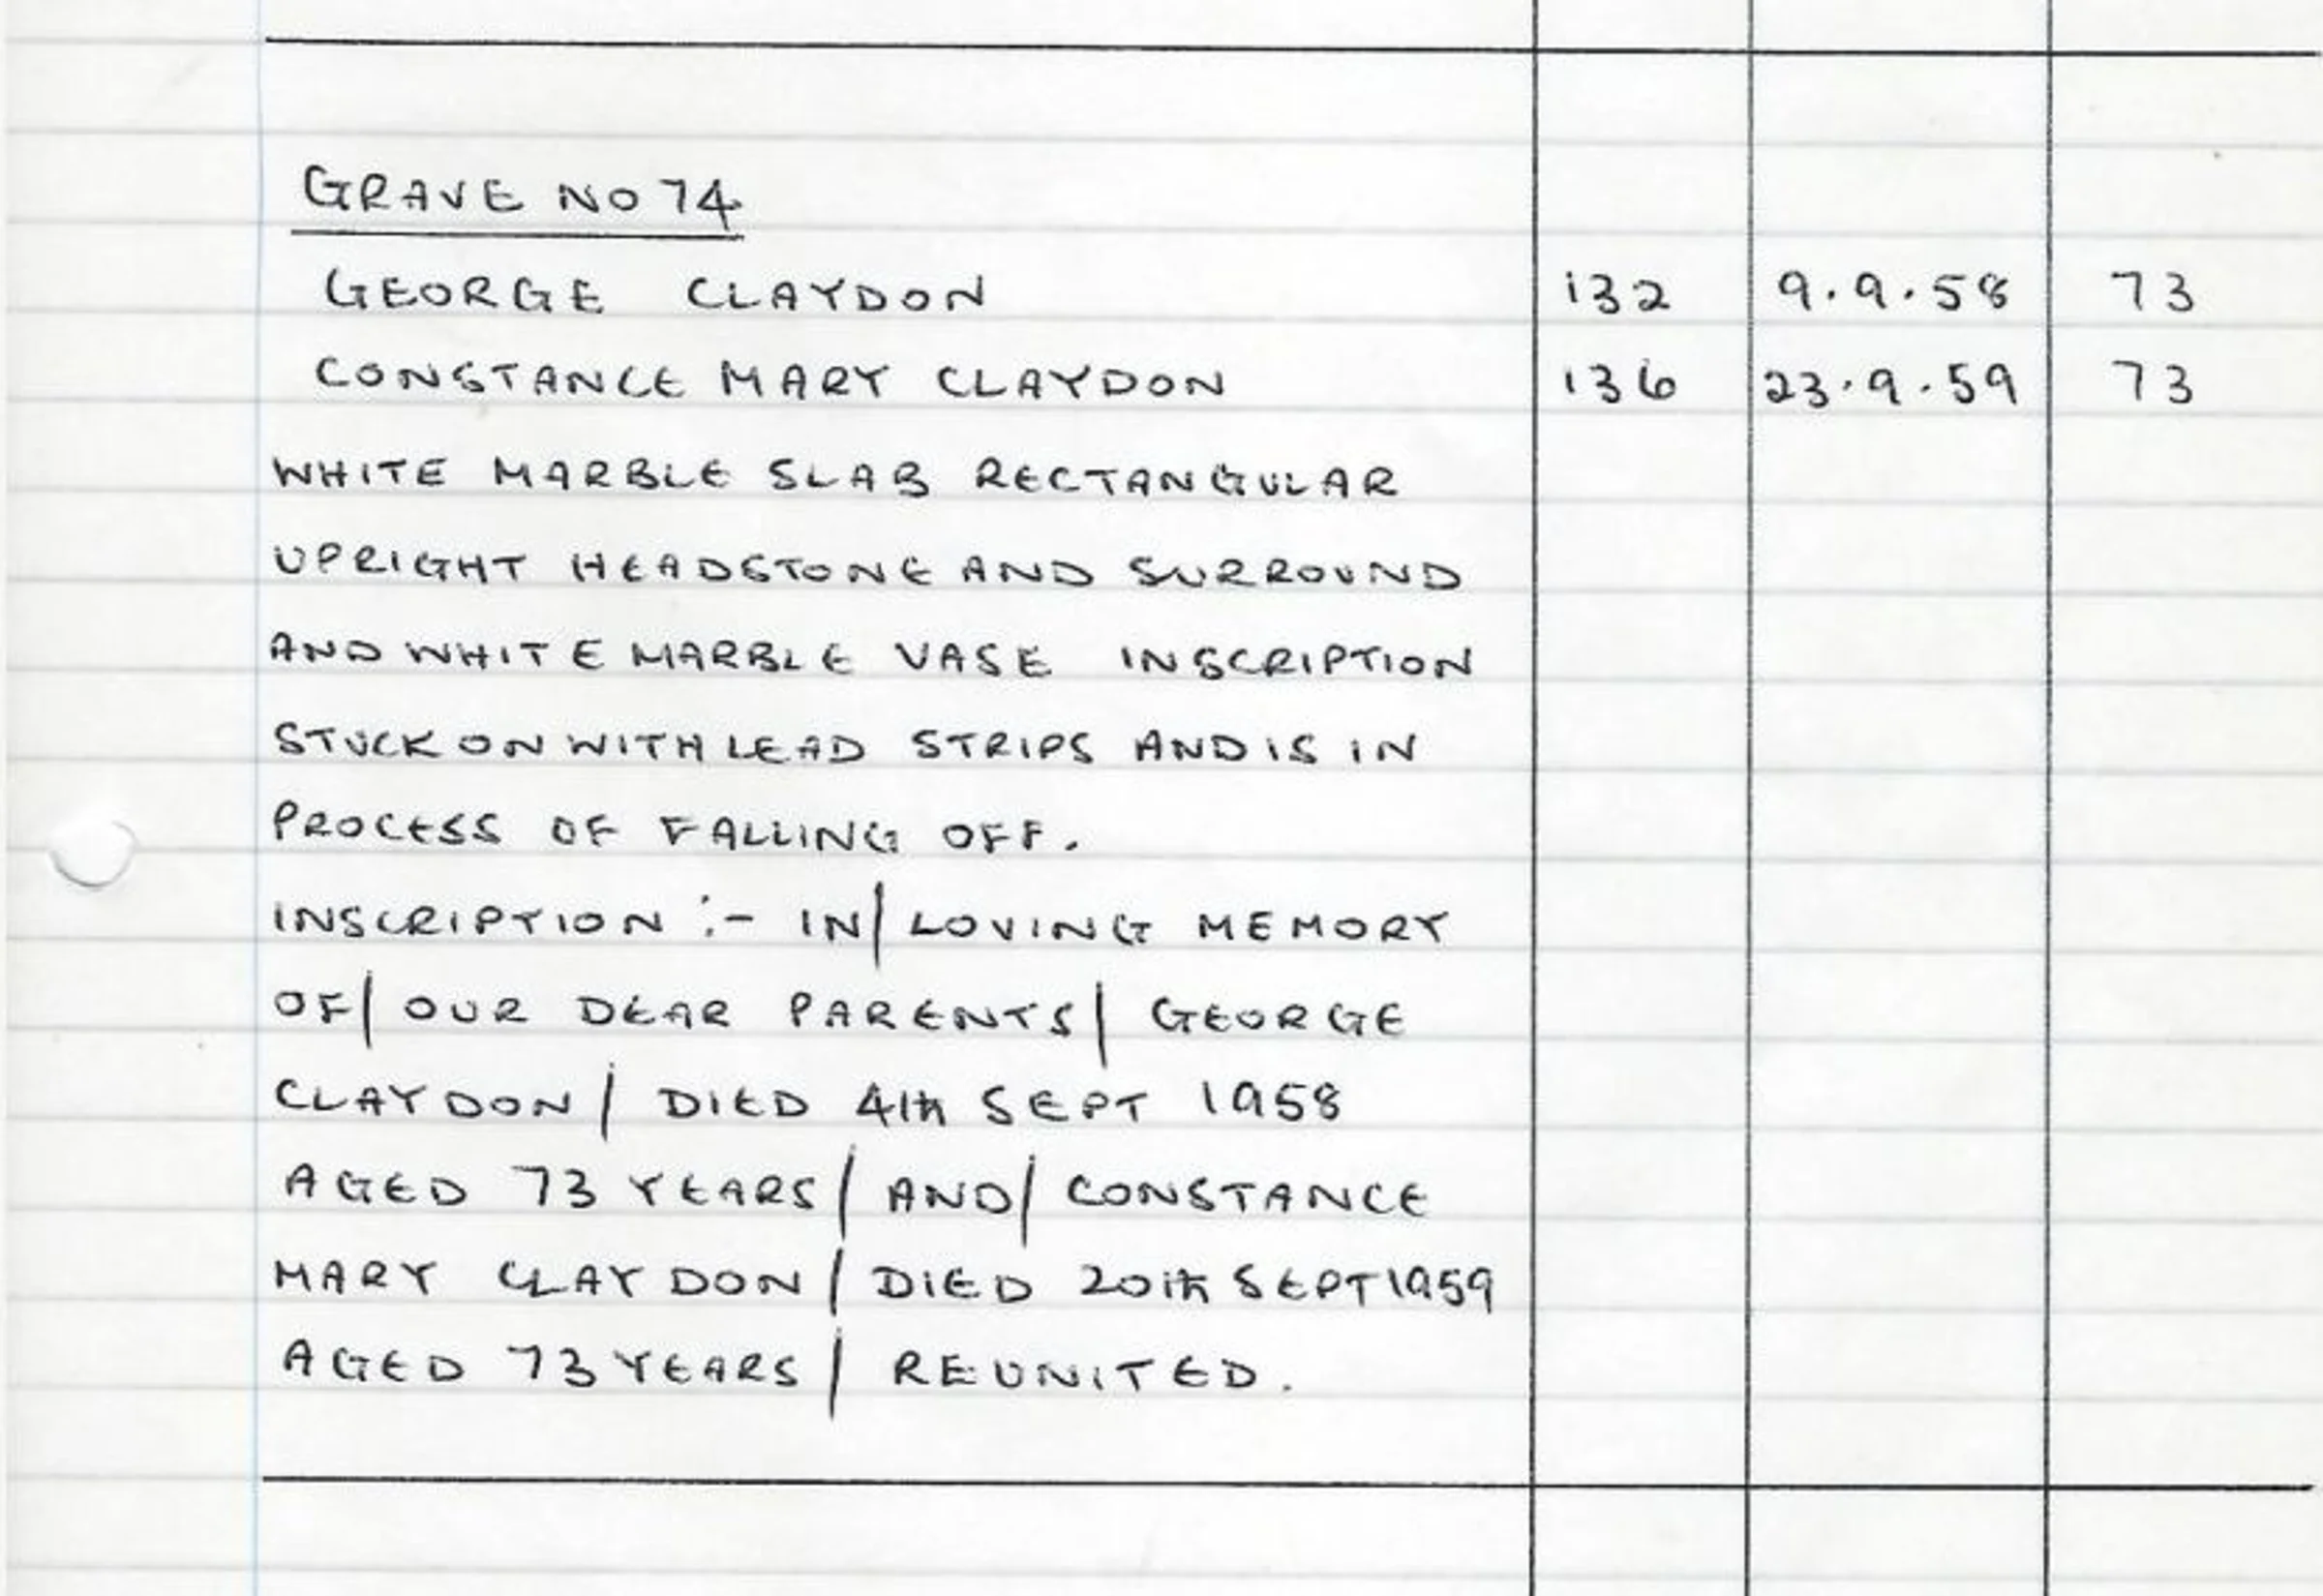 GRAVE NO 74
GEORGE CLAYDON 132 9.9.58 73
CONSTANCE MARY CLAYDON 136 23.9.59 73
WHITE MARBLE SLAB RECTANGULAR
UPRIGHT HEADSTONE AND SURROUND
AND WHITE MARBLE VASE INSCRIPTION
STUCK ON WITH LEAD STRIPS AND IS IN
PROCESS OF FALLING OFF.
INSCRIPTION :- IN/ LOVING MEMORY
OF/ OUR DEAR PARENTS/ GEORGE
CLAYDON/ DIED 4th SEPT 1958
AGED 73 YEARS/ AND/ CONSTANCE
MARY CLAYDON/ DIED 20th SEPT 1959
AGED 73 YEARS/ REUNITED.